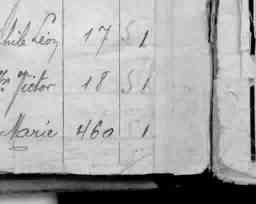 hile Léon 17 51
Victor 18 51
Marie 460 1